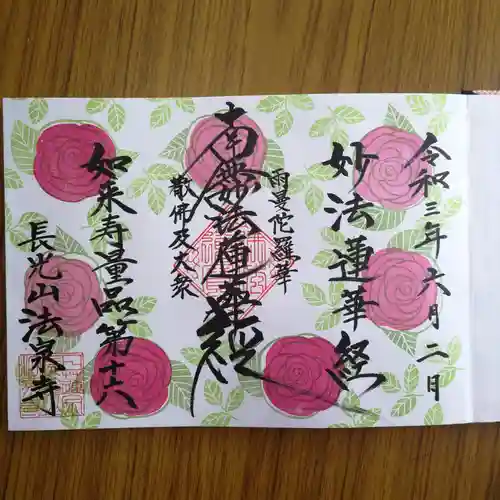 令和三年六月二日
妙法蓮華経
雨曼陀羅華
南無妙法蓮華経
散佛及大衆
如来寿量品第十六
長光山法泉寺